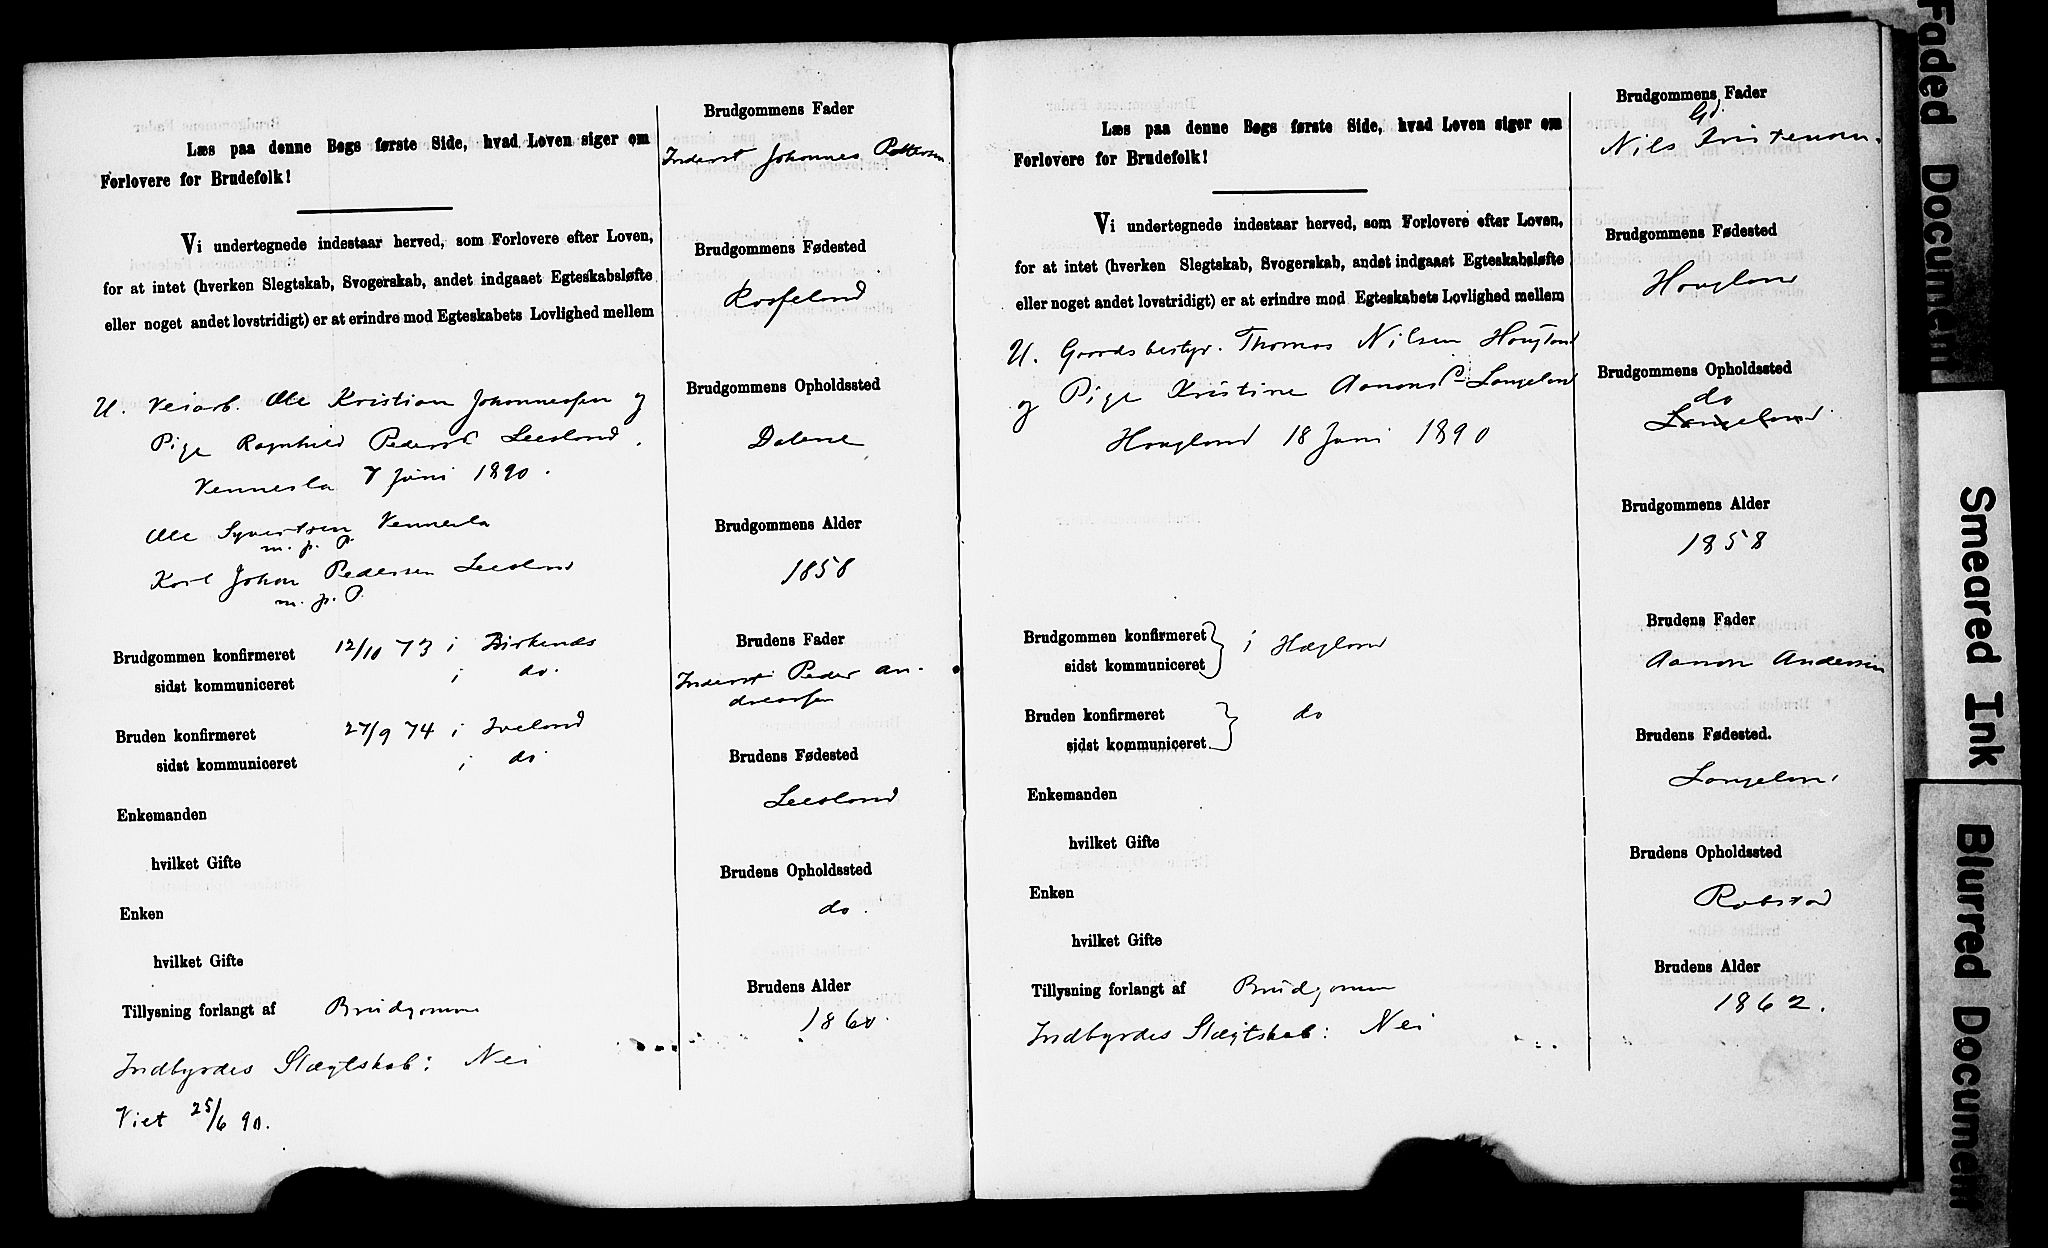 Læs paa denne Bogs første Side, hvad Loven siger om
Forlovere for Brudefolk!
Vi undertegnede indestaar herved, som Forlovere efter Loven,
for at intet (hverken Slegtskab, Svogerskab, andet indgaaet Egteskabsløfte
eller noget andet lovstridigt) er at erindre mod Egteskabets Lovlighed mellem
U. Veiarb. Ole Kristian Johannessen og
Pige Ragnhild Pedersd Leesland.
Vennesla 7 Juni 1890.
Ole Syvertsen Vennesla
m. p. P.
Karl Johan Pedersen Leesland
m. p. P.
Brudgommen konfirmeret 12/10 73 i Birkenæs
sidst kommuniceret i do.
Bruden konfirmeret 27/9 74 i Iveland
sidst kommuniceret i do
Enkemanden
hvilket Gifte
Enken
hvilket Gifte
Tillysning forlangt af Brudgommen
Indbyrdes Slægtskab: Nei
Viet 25/6 90.
Brudgommens Fader
Inderst Johannes Pettersen
Brudgommens Fødested
Rosseland
Brudgommens Opholdssted
Dalene
Brudgommens Alder
1858
Brudens Fader
Inderst Peder An-
dreassen
Brudens Fødested
Leesland
Brudens Opholdssted
do.
Brudens Alder
1860.
Læs paa denne Bogs første Side, hvad Loven siger om
Forlovere for Brudefolk!
Vi undertegnede indestaar herved, som Forlovere efter Loven,
for at intet (hverken Slegtskab, Svogerskab, andet indgaaet Egteskabsløfte
eller noget andet lovstridigt) er at erindre mod Egteskabets Lovlighed mellem
U. Gaardsbestyr. Thomas Nilsen Hougland
og Pige Kristine Aanonsd Langeland
Hougland 18 Juni 1890
Brudgommen konfirmeret
sidst kommuniceret } i Hægland
Bruden konfirmeret
sidst kommuniceret } do
Enkemanden
hvilket Gifte
Enken
hvilket Gifte
Tillysning forlangt af Brudgommen
Indbyrdes Slægtskab: Nei
Brudgommens Fader
Nils
Brudgommens Fødested
Hougland
Brudgommens Opholdssted
do
Langeland
Brudgommens Alder
1858
Brudens Fader
Aanon Andersen
Brudens Fødested.
Langeland
Brudens Opholdssted
Robstad
Brudens Alder
1862.
Faded Document
Smeared Ink
Blurred Document